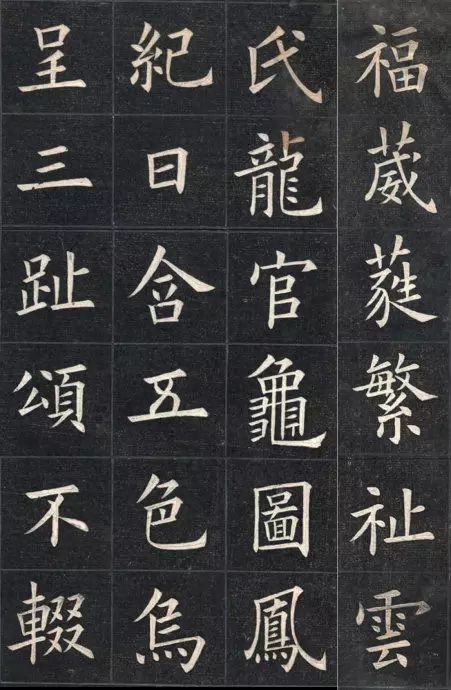 福葳蕤繁祉雲
氏龍官龜圖鳳
紀日含五色烏
呈三趾頌不輟